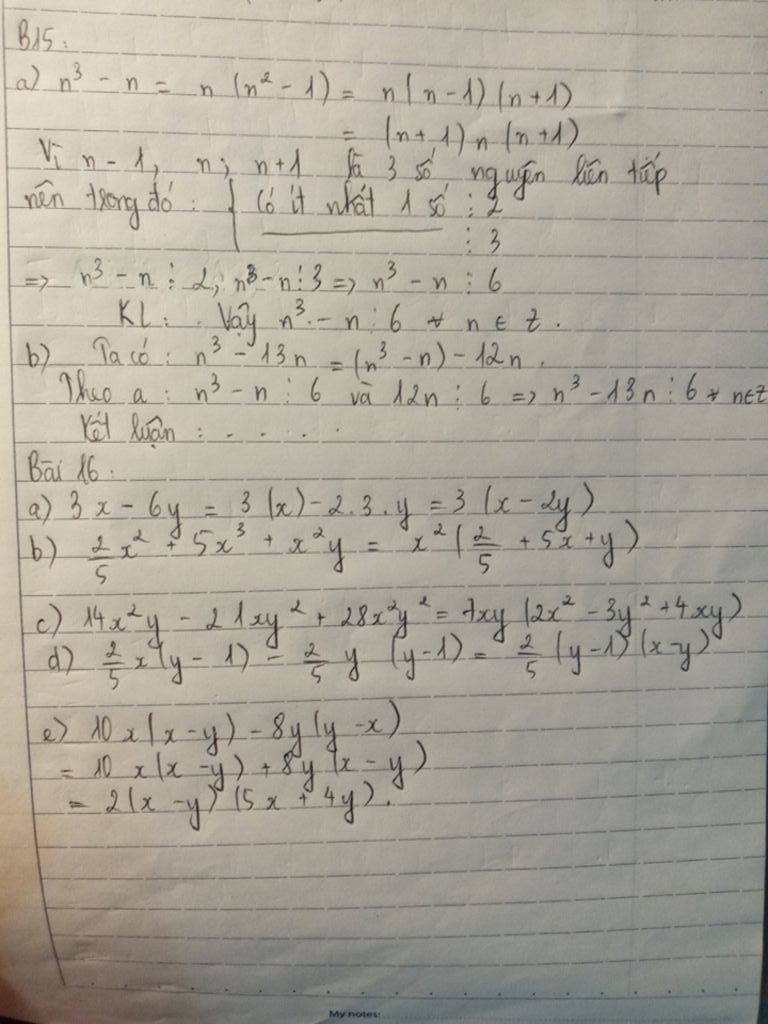 B15:
a) n³ - n = n (n² - 1) = n(n-1)(n+1)
= (n+1) n (n+1)
Vì n-1, n; n+1 là 3 số nguyên liên tiếp
nên trong đó: { Có ít nhất 1 số ⋮ 2
⋮ 3
=> n³ - n ⋮ 2; n³-n⋮3 => n³ - n ⋮ 6
KL: Vậy n³ - n ⋮ 6 ∀ n ∈ Z.
b) Ta có: n³ - 13n = (n³ - n) - 12n.
Theo a: n³ - n ⋮ 6 và 12n ⋮ 6 => n³ - 13n ⋮ 6 ∀ n∈Z
Kết luận: . . . .
Bài 16:
a) 3x - 6y = 3(x) - 2.3.y = 3(x - 2y)
b) 2/5 x² + 5x³ + x²y = x² (2/5 + 5x + y)
c) 14x²y - 21xy² + 28x²y² = 7xy (2x² - 3y² + 4xy)
d) 2/5 x(y - 1) - 2/5 y (y-1) = 2/5 (y-1) (x-y)
e) 10x(x-y) - 8y(y-x)
= 10x(x-y) + 8y(x-y)
= 2(x-y) (5x + 4y).
My notes: